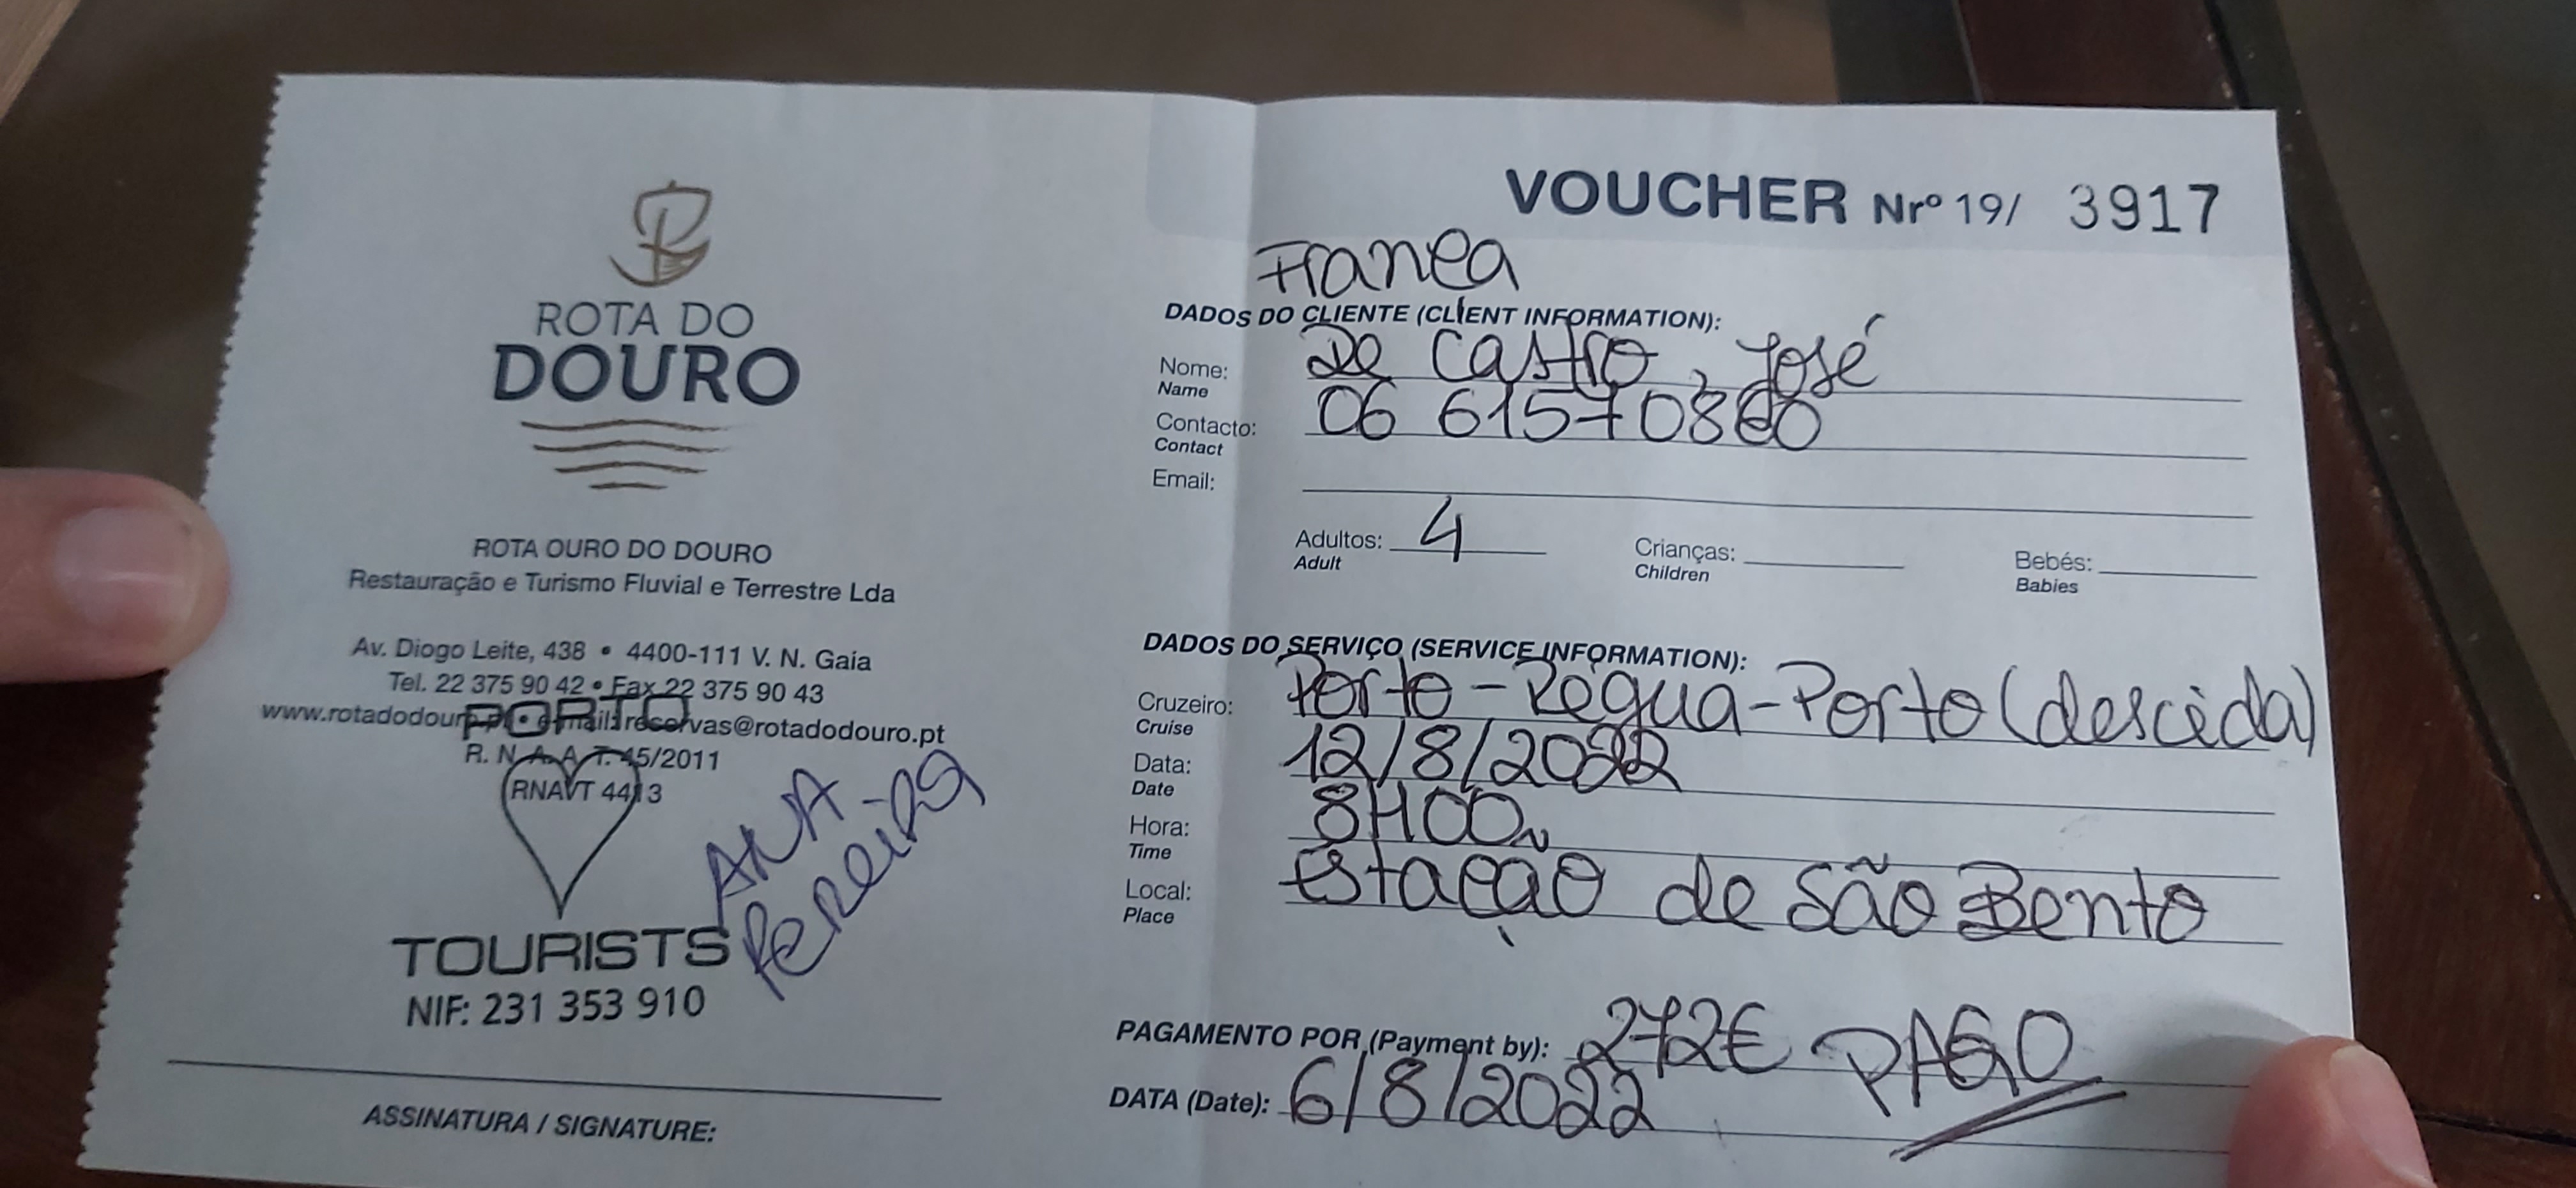 ROTA DO
DOURO
ROTA OURO DO DOURO
Restauração e Turismo Fluvial e Terrestre Lda
Av. Diogo Leite, 438 • 4400-111 V. N. Gaia
Tel. 22 375 90 42 • Fax 22 375 90 43
www.rotadodouro.pt • e-mail: reservas@rotadodouro.pt
PORTO
R. N. A. A. T. 45/2011
RNAVT 4413
TOURISTS
NIF: 231 353 910
ANA
PEREIRA
ASSINATURA / SIGNATURE:
VOUCHER Nrº 19/ 3917
França
DADOS DO CLIENTE (CLIENT INFORMATION):
Nome: De Castro, José
Name
Contacto: 06 61570880
Contact
Email:
Adultos: 4 Crianças: Bebés:
Adult Children Babies
DADOS DO SERVIÇO (SERVICE INFORMATION):
Cruzeiro: Porto-Régua-Porto (descida)
Cruise
Data: 12/8/2022
Date
Hora: 8H00
Time
Local: Estação de São Bento
Place
PAGAMENTO POR (Payment by): 272€ PAGO
DATA (Date): 6/8/2022